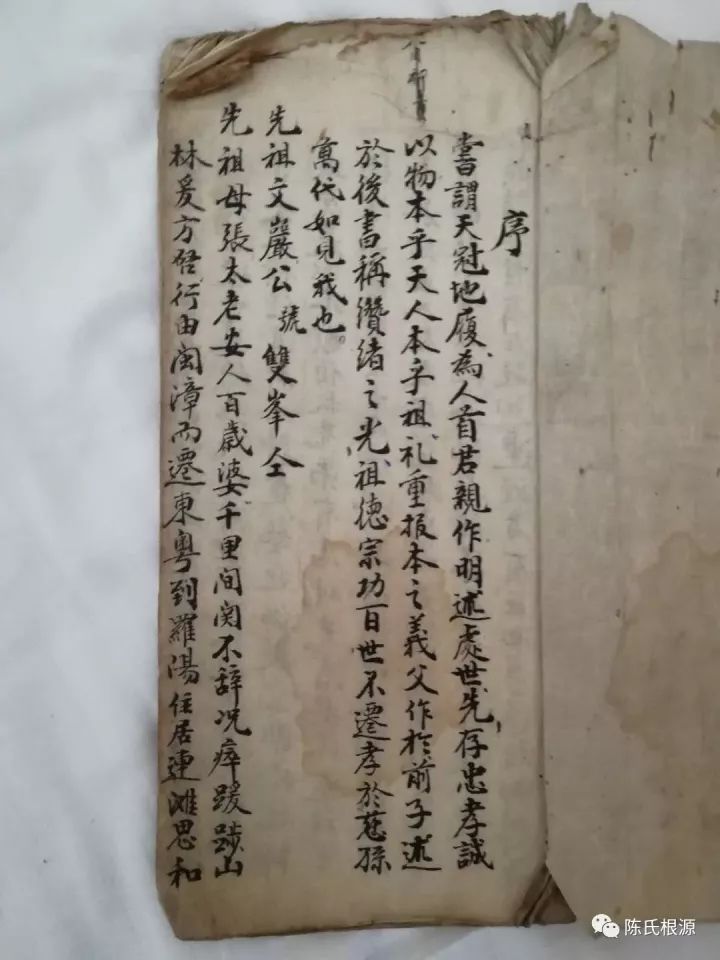 序
嘗謂天冠地履為人首君親作明述處世先存忠孝誠
以物本乎天人本乎祖礼重报本之義父作於前子述
於後書稱纘緒之光祖德宗功百世不遷孝於慈孫
萬代如見我也。
先祖文巖公號雙峯仝
先祖母張太老安人百歲婆千里间関不辞况瘁跋踄山
林爰方啓行由闽漳而遷東粵到羅湯住居連滩思和
陈氏根源